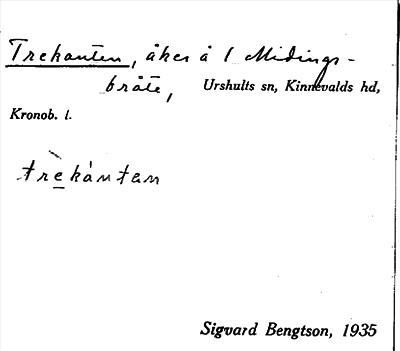 Trekanten, åker å 1 Midings-
bråte, Urshults sn, Kinnevalds hd,
Kronob. l.
trèkànten
Sigvard Bengtson, 1935